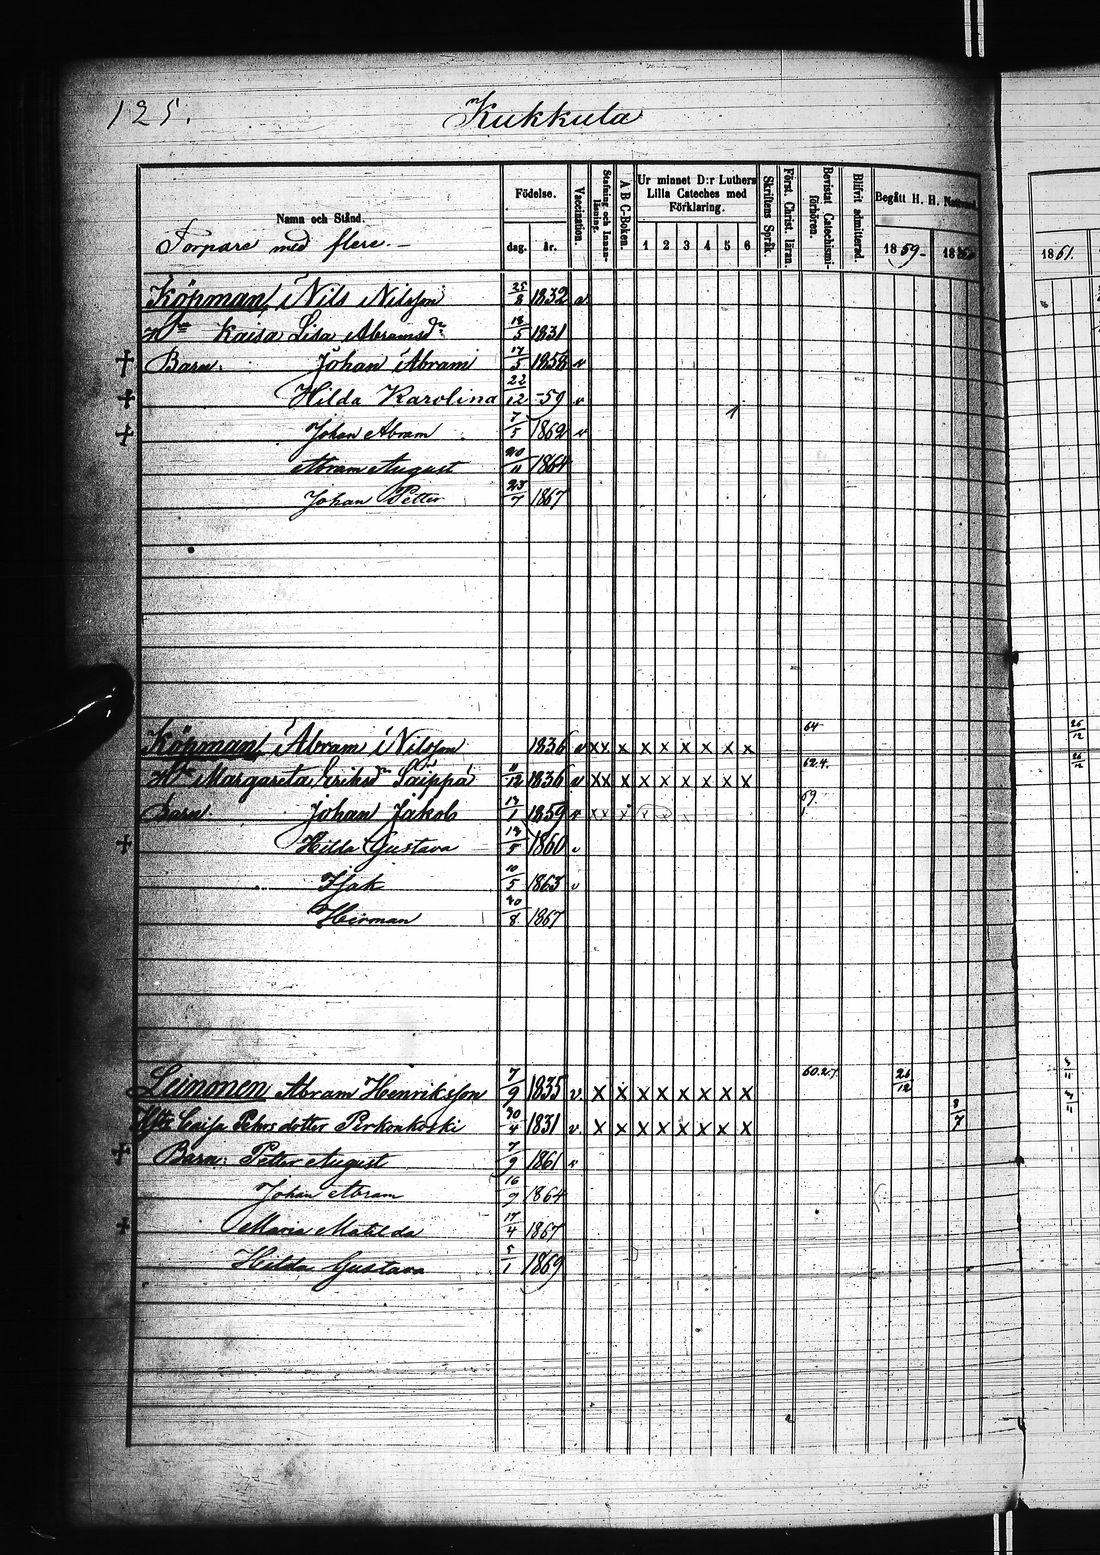 125.
Kukkula
Namn och Stånd. Födelse. Vaccination. Stafning och Innanläsning. A B C-Boken. Ur minnet D:r Luthers Lilla Cateches med Förklaring. Skriftens Språk. Först. Christ. läran. Bevistat Catechismiförhören. Blifvit admitterad. Begått H. H. Nattvard.
Torpare med flere.- dag. år. 1 2 3 4 5 6 1859- 18 1861.
Köpman, Nils Nilsson 25/8 1832 v
H:u Kaisa Lisa Abramsd:r 18/5 1831
+ Barn: Johan Abram 17/5 1858 v
+ Hilda Karolina 22/12 -59 v
+ Johan Abram 7/5 1862 v
Abram August 20/11 1864
Johan Petter 23/7 1867
Köpman, Abram Nilsson 1836 v x x x x x x x x x 64 26/12
H:u Margareta Eriksd:r Saippa 11/12 1836 v x x x x x x x x x 62.4. 26/12
Barn Johan Jakob 17/1 1859 v x x x 69.
+ Hilda Gustava 18/5 1860 v
Isak 10/5 1863 v
Herman 30/8 1867
Leinonen Abram Henriksson 7/9 1835 v. x x x x x x x x 60.2.7. 26/12
Hst: Caisa Pehrs dotter Perkonkoski 30/4 1831 v. x x x x x x x x 8/7
+ Barn: Petter August 7/9 1861 v
Johan Abram 16/9 1864
+ Maria Matilda 17/4 1867
Hilda Gustava 5/1 1869